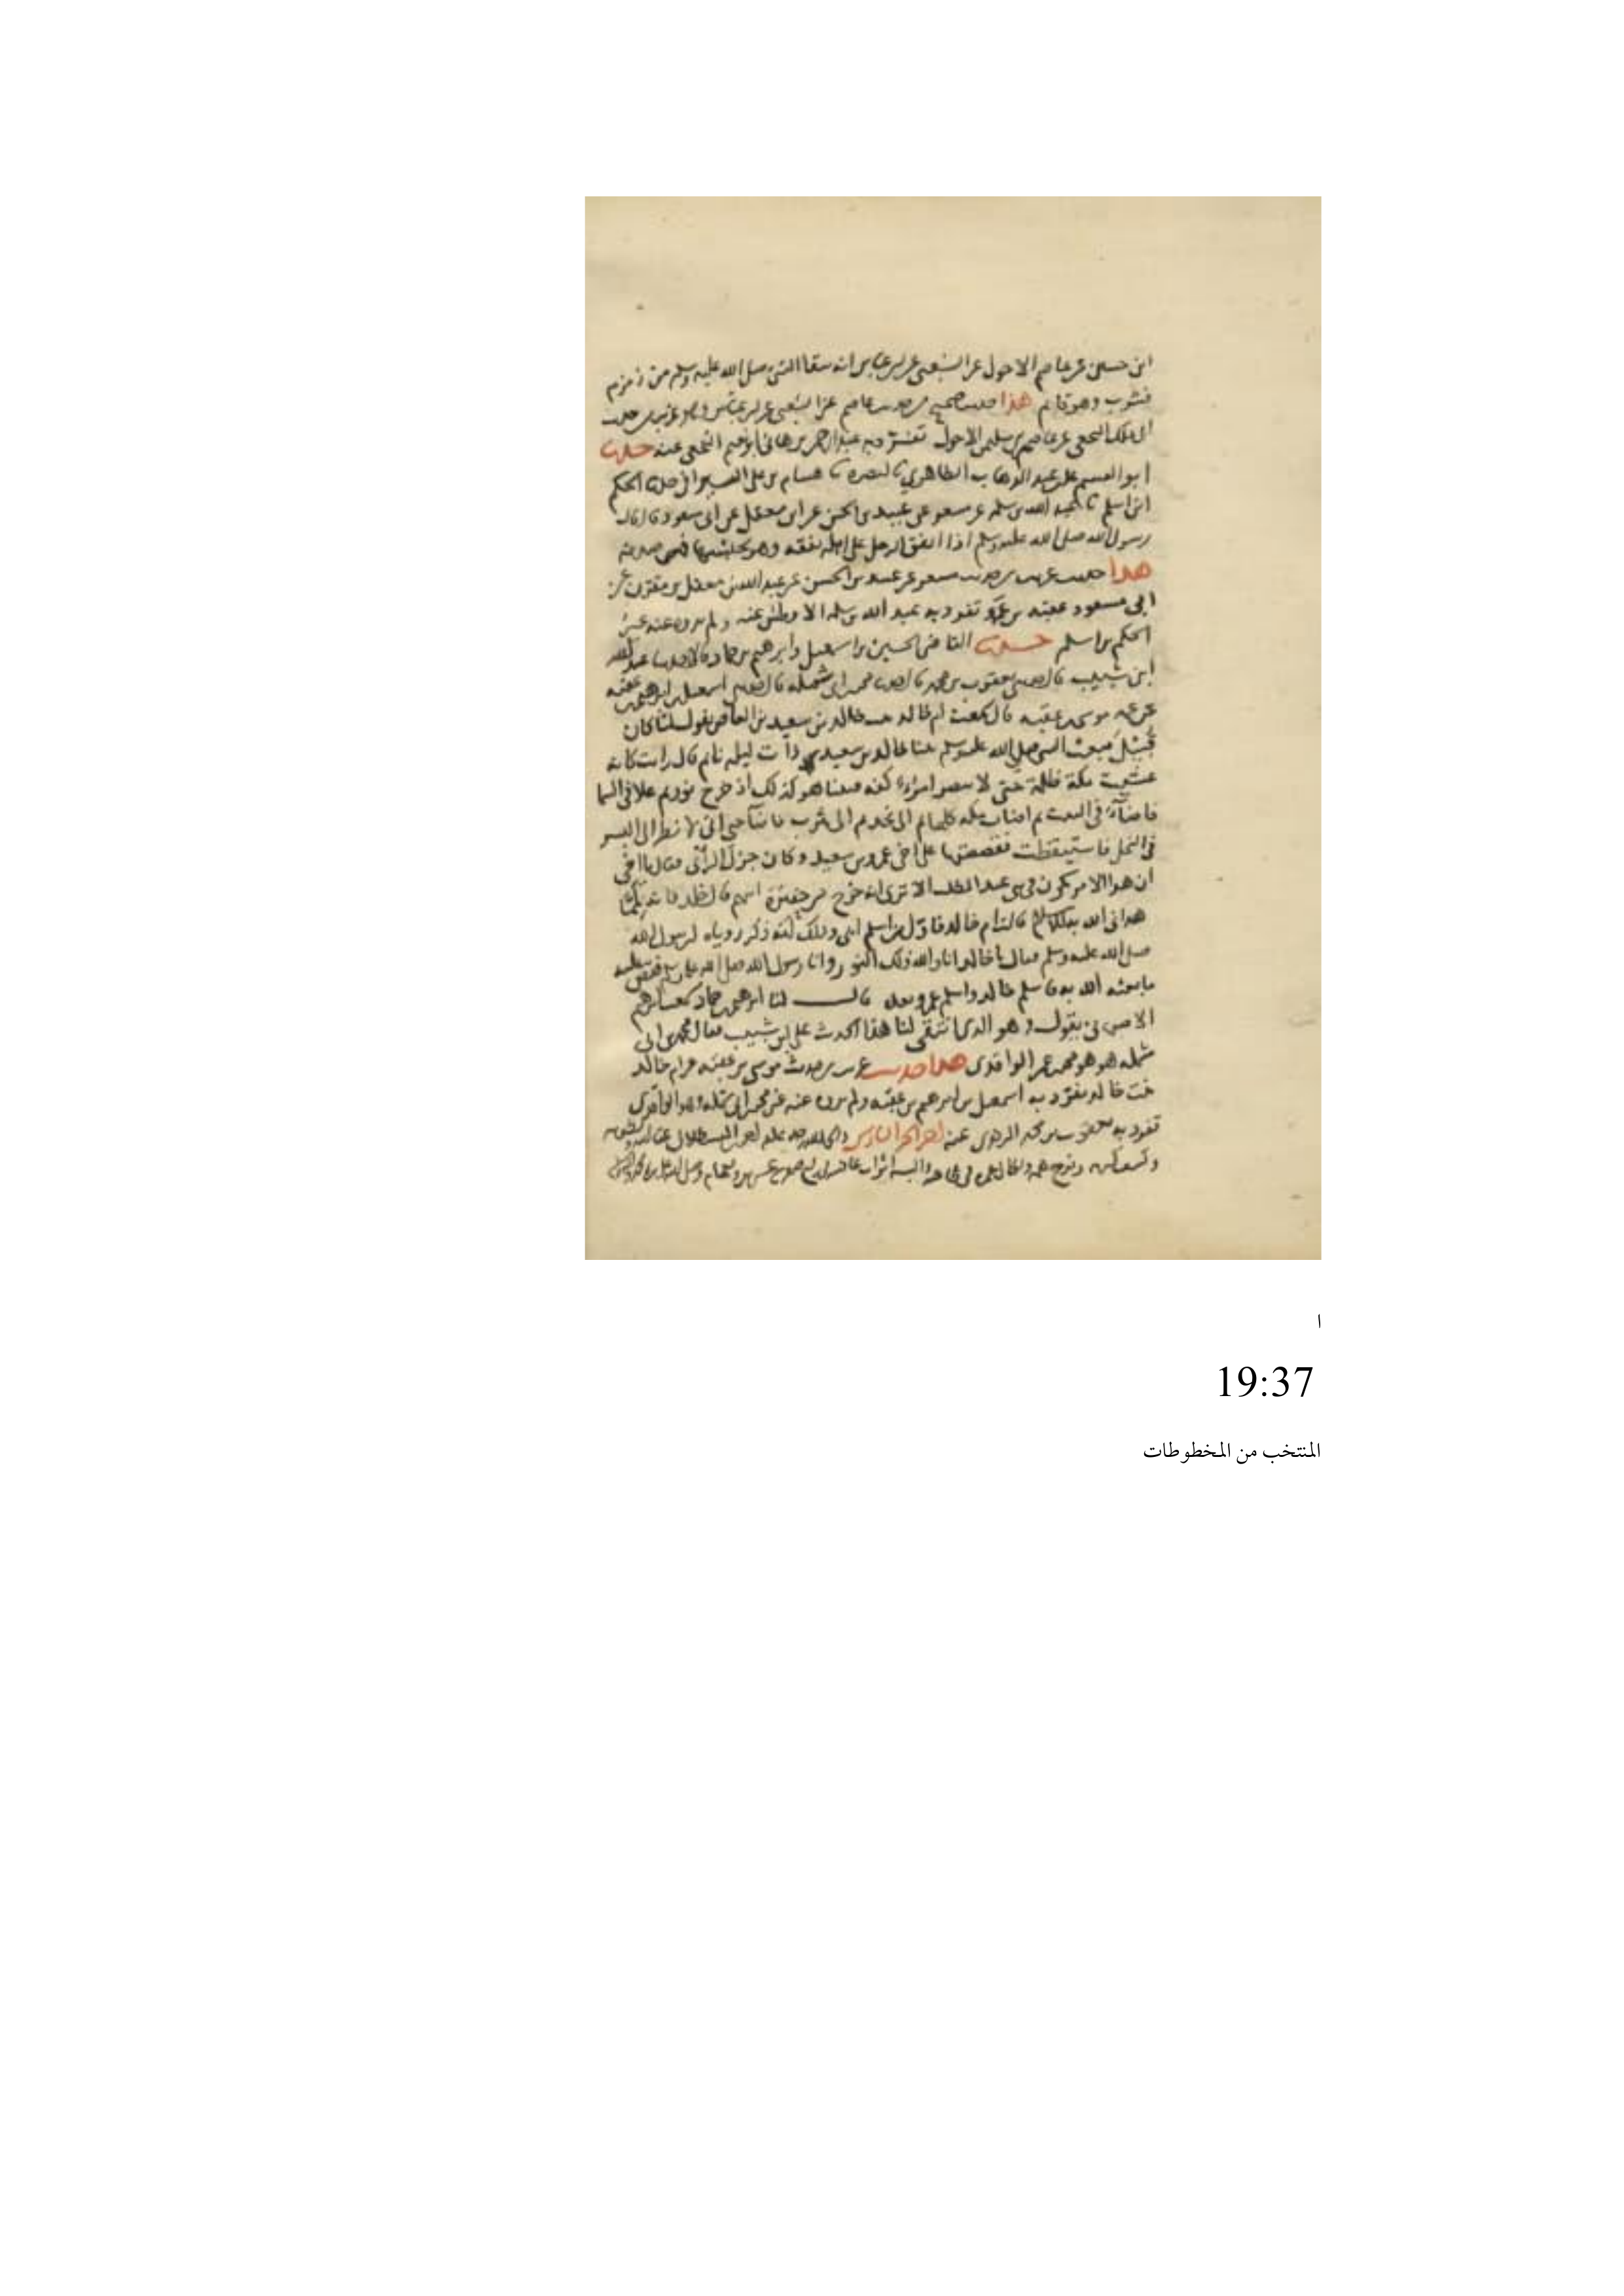 ابن حسين عن عاصم الاحول عن الشعبي عن ابن عباس انه سقا النبي صلى الله عليه وسلم من زمزم
فشرب وهو قائم هذا حديث صحيح من حديث عاصم عن الشعبي عن ابن عباس وهو غريب من حديث
ابي ملك النخعي عن عاصم بن سليمن الاحول تفرد به عبد الرحمن بن هاني ابو نعيم النخعي عنه حدثنا
ابو القسم علي بن عبد الوهاب الطاهري بالبصره نا هشام بن علي السيرافي حدثنا الحكم
ابن اسلم نا عبد الله بن سلمه عن مسعر عن عبيد بن الحسن عن ابن معقل عن ابي مسعود قال قال
رسول الله صلى الله عليه وسلم اذا انفق الرجل على اهله نفقه وهو يحتسبها فهي صدقه
هذا حديث غريب من حديث مسعر عن عبيد بن الحسن عن عبد الله بن معقل بن مقرن عن
ابي مسعود عقبه بن عمرو تفرد به عبد الله بن سلمه الافطس عنه ولم يروه عنه غير
الحكم بن اسلم حدثنا القاضي الحسين بن اسمعيل وابرهيم بن حماد قالا حدثنا عبد الله
ابن شبيب قال حدثني يعقوب بن محمد قال حدثنا محمد بن ابي شمله قال حدثني اسمعيل بن ابرهيم بن عقبه
عن عمه موسى بن عقبه قال سمعت ام خالد بنت خالد بن سعيد بن العاص يقول لما كان
قبيل مبعث النبي صلى الله عليه وسلم بينا خالد بن سعيد ذات ليله نائم قال رايت كانه
غشيت مكة ظلمة حتى لا يبصر امرؤ كفه فبينا هو كذلك اذ خرج نور ثم علا في السما
فاضاء في البيت ثم اضات مكه كلها ثم الى نجد ثم الى يثرب فاضاها حتى اني لانظر الى البسر
في النخل فاستيقظت فقصصتها على اخي عمرو بن سعيد وكان جزل الراي فقال يا اخي
ان هذا الامر يكون في بني عبد المطلب الا ترى انه خرج من حفيرة ابيهم قال خالد فانه
هداني الله به للاسلام قالت ام خالد فاول من اسلم ابي وذلك انه ذكر روياه لرسول الله
صلى الله عليه وسلم فقال يا خالد انا والله ذلك النور وانا رسول الله صلى الله عليه وسلم فقص عليه
ما بعثه الله به فاسلم خالد واسلم عمرو بعده قال لنا ابرهيم بن حماد سمعت ابرهيم
الاصبهاني يقول وهو الذي انتقى لنا هذا الحديث على ابن شبيب فقال محمد بن ابي
شمله هو هو محمد بن عمر الواقدي هذا حديث غريب من حديث موسى بن عقبه عن ام خالد
بنت خالد تفرد به اسمعيل بن ابرهيم بن عقبه ولم يروه عنه غير محمد بن ابي شمله وهو الواقدي
تفرد به يعقوب بن محمد الزهري عنه اخر الجز السادس
ا
19:37
المنتخب من المخطوطات